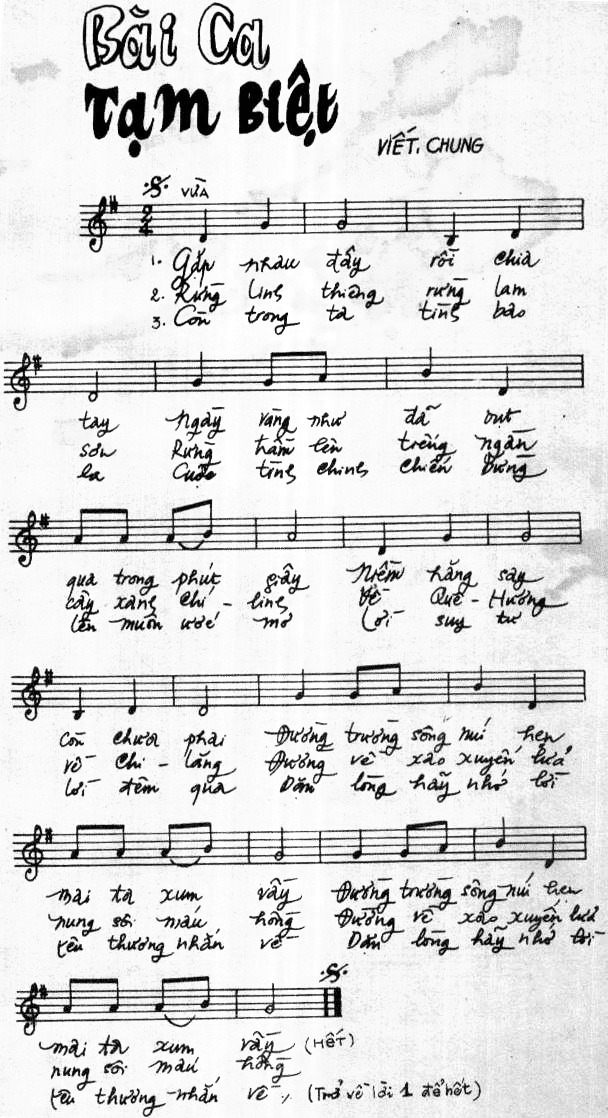 Bài Ca
Tạm Biệt
VIẾT. CHUNG
VỪA
2
4
1. Gặp nhau đây rồi chia
2. Rừng linh thiêng rừng lam
3. Còn trong ta tình bảo
tay Ngày vàng như đã vut
sơn Rừng hầm lên trếng ngàn
la Cuộc tình chinh chiến Đừng
qua trong phút giây Niềm hăng say
cây xanh Chí - linh Về Quê - Hương
lên muôn ước mơ Lời suy tư
Còn chưa phai Đường trường sông núi hẹn
về Chi - lăng Đường về xao xuyến lửa
lời đêm qua Dặn lòng hãy nhớ lời
mai ta xum vầy Đường trường sông núi hẹn
nung sôi máu hồng Đường về xao xuyến lửa
yêu thương nhắn về Dặn lòng hãy nhớ lời
mai ta xum vầy (HẾT)
nung sôi máu hồng
yêu thương nhắn về,, (Trở về lời 1 để hết)